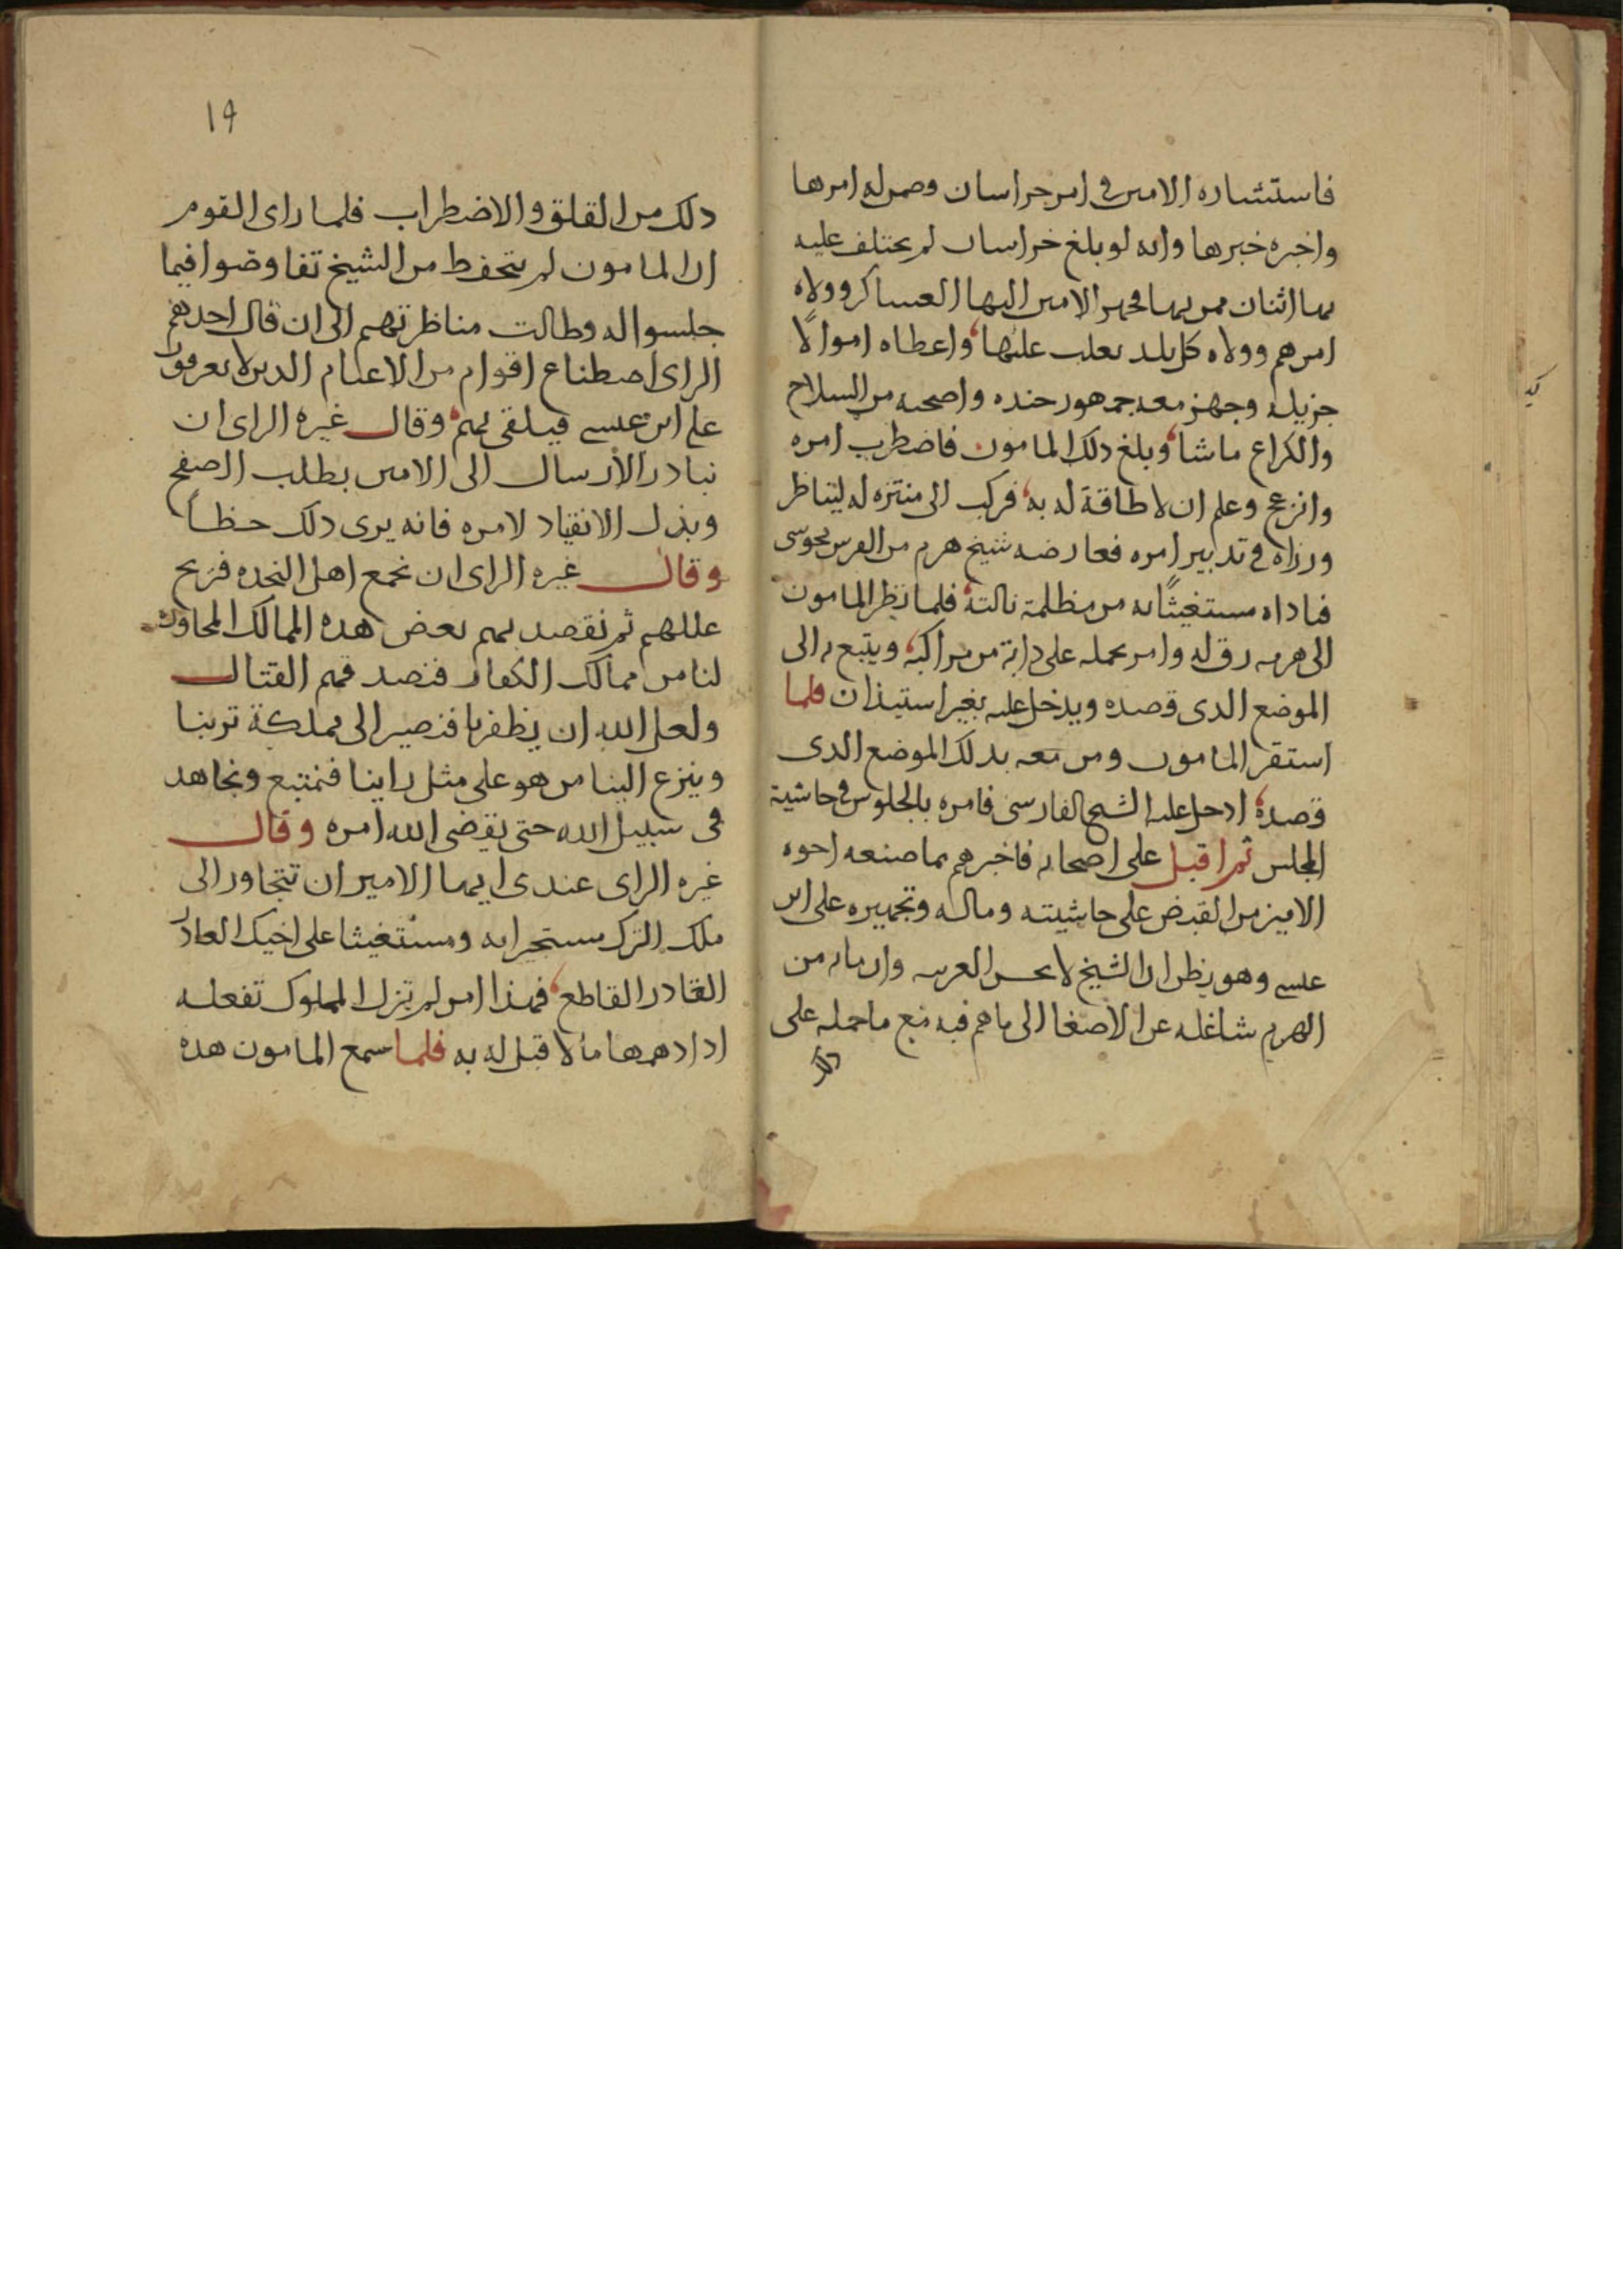 فاستشاره الامين في امر خراسان وضمن له امرها
واخبره خبرها وانه لو بلغ خراسان لم يختلف عليه
بها اثنان ممن بها فجهز الامين اليها العساكر وولاه
امرهم وولاه كل بلد يغلب عليها واعطاه اموالًا
جزيله وجهز معه جمهور جنده واصحبه من السلاح
والكراع ما شا وبلغ ذلك المامون فاضطرب امره
وانزعج وعلم ان لا طاقة له به فركب الى منتزه له ليناظر
وزراه في تدبير امره فعارضه شيخ هرم من الفرس مجوسى
فناداه مستغيثًا به من مظلمة نالته فلما نظر المامون
الى هرمه رق له وامر بحمله على دابة من مراكبه ويتبع به الى
الموضع الذى قصده ويدخل عليه بغير استيذان فلما
استقر المامون ومن معه بذلك الموضع الذى
قصده ادخل عليه الشيخ الفارسى فامره بالجلوس في حاشية
المجلس ثم اقبل على اصحابه فاخبرهم بما صنعه اخوه
الامين من القبض على حاشيته وماله وتجهيزه على ابن
عيسى وهو يظن ان الشيخ لا يحسن العربيه وان ما به من
الهرم شاغله عن الاصغا الى ما هم فيه مع ما حمله على
ذلك
١٩
ذلك من القلق والاضطراب فلما راى القوم
ان المامون لم يتحفظ من الشيخ تفاوضوا فيما
جلسوا له وطالت مناظرتهم الى ان قال احدهم
الراى اصطناع اقوام من الاغتام الذين لا يعرفون
على ابن عيسى فيلقى بهم وقال غيره الراى ان
نبادر الارسال الى الامين بطلب الصفح
وبذل الانقياد لامره فانه يرى ذلك حظاً
وقال غيره الراى ان نجمع اهل النجده فنزيح
عللهم ثم نقصد بهم بعض هذه الممالك المجاوره
لنا من ممالك الكفار فنصدقهم القتال
ولعل الله ان يظفرنا فنصير الى مملكة تربنا
وينزع الينا من هو على مثل راينا فنمتنع ونجاهد
فى سبيل الله حتى يقضى الله امره وقال
غيره الراى عندى ايها الامير ان تتجاوز الى
ملك الترك مستجيرا به ومستغيثا على اخيك الغادر
الغادر القاطع فهذا امر لم تزل الملوك تفعله
اذا دهمها ما لا قبل له به فلما سمع المامون هذه